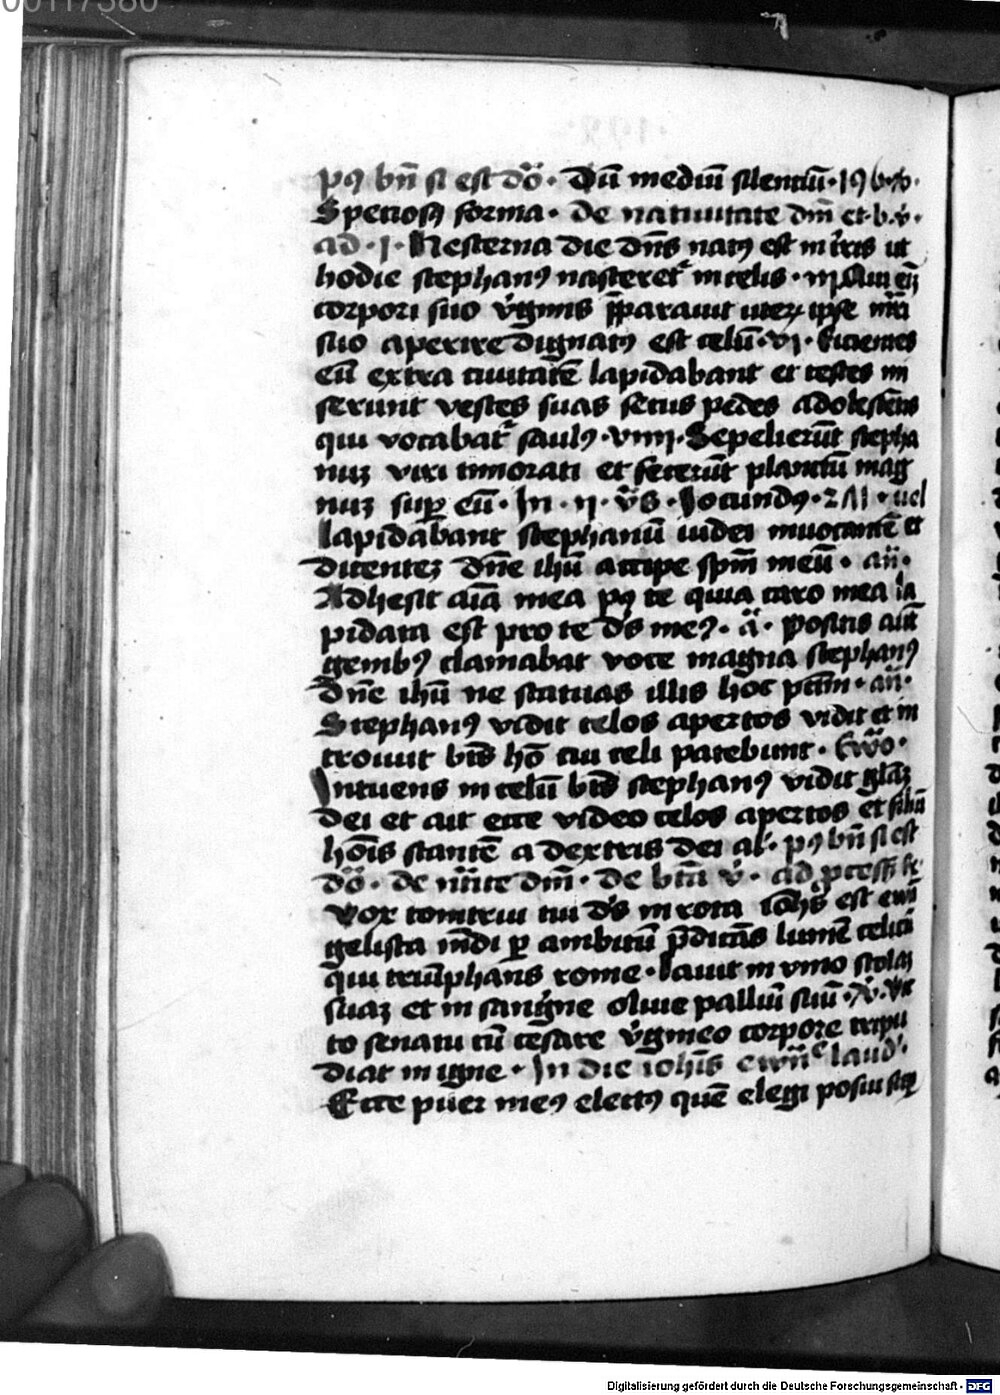 00117380
pꝰ bn̄ si est do᷑. Dū mediū silentiū. 
Speciosꝰ forma. de natiuitate dn̄i et b. v̇.
ad .j. Hesterna die dn̄s natꝰ est in tr̄is ut
hodie stephanꝰ nasceret᷑ in celis. 
corpori suo v̇ginis p̄parauit ipse m̄ri
suo aperire dignatꝰ est celū. vj. Eicientes
eū extra ciuitatē lapidabant et testes 
serunt vestes suas secus pedes adolescētis
qui vocabat᷑ saulꝰ. viiij. Sepelierūt stepha
nuꝫ viri timorati et fecerūt planctū mag
nuꝫ suꝑ eū. In .ij. v̄s. Iocundꝰ. uel
lapidabant stephanū iudei inuocantē et
dicenteꝫ dn̄e ihū accipe spm̄ meū. an̄.
Adhesit aīa mea pꝰ te quia caro mea la
pidata est pro te ds̄ meꝰ. a᷑. Positis aūt
genibꝰ clamabat voce magna stephanꝰ
dn̄e ihū ne statuas illis hoc pctm̄. an̄.
Stephanꝰ vidit celos apertos vidit et in
troiuit bt̄s hō cui celi patebunt. Ewo᷑.
Intuens in celū bt̄s stephanꝰ vidit glāꝫ
dei et ait ecce video celos apertos et filiū
hoīs stantē a dextris dei al᷑. pꝰ bn̄ si est
do᷑. de dm̄. de btā v̇. ad ꝓcess̄
Vox tonitrui tui ds̄ in rota ioh̄s est ewā
gelista mūdi ꝑ ambitū p̄dicās lumē celicū
qui triūphans rome. lauit in vino stolaꝫ
suaꝫ et in sangīne oliue palliū suū. v̇. Vic
to senatu cū cesare v̇gineo corpore tripu
diat in igne. In die ioh̄is ewn̄e laud᷑.
Ecce puer meꝰ electꝰ quē elegi posui
Digitalisierung gefördert durch die Deutsche Forschungsgemeinschaft - DFG